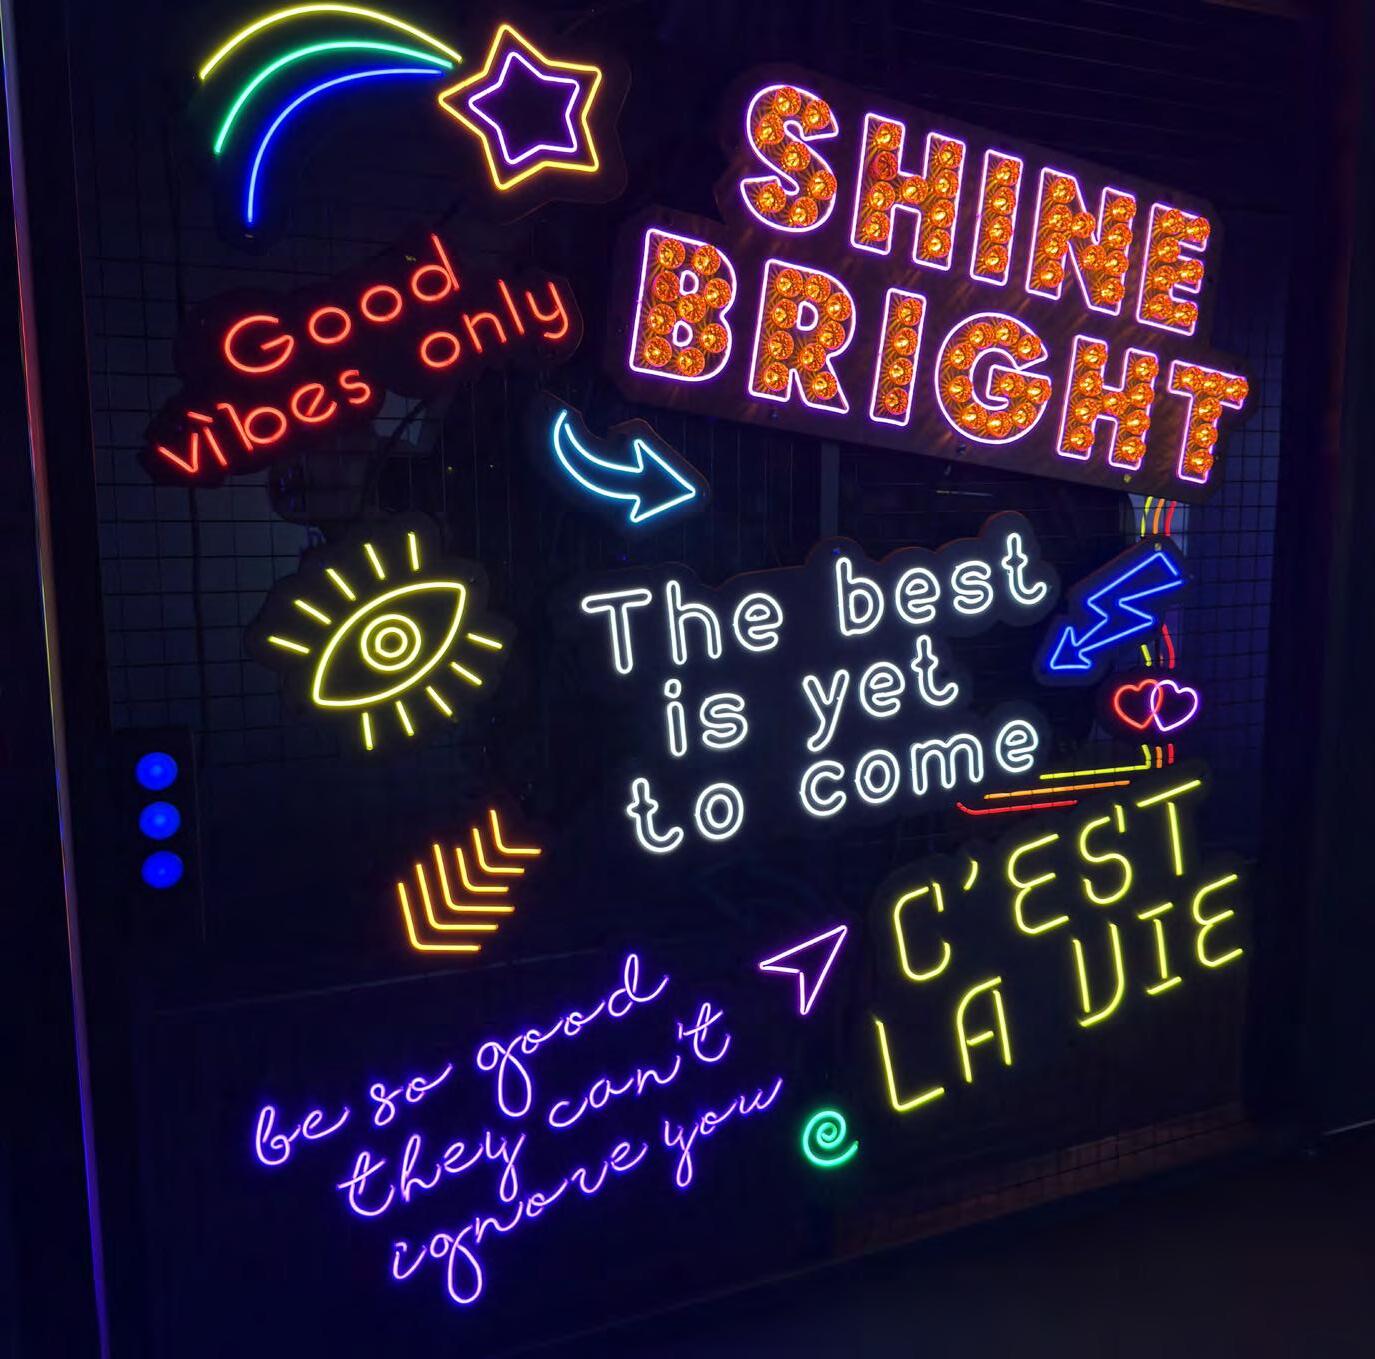 SHINE
BRIGHT
Good
vibes only
The best
is yet
to come
C'EST
LA VIE
be so good
they can't
ignore you